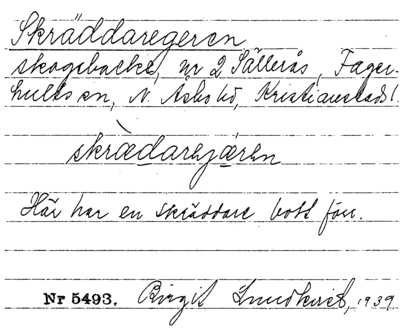 Skräddaregeren
skogsbacke, nr 2 Sällerås, Fager-
hults sn, N. Åsbo hd, Kristianstads l.
skrädarejæren
Här har en skräddare bott förr.
Nr 5493. Birgit Lundkvist, 1939